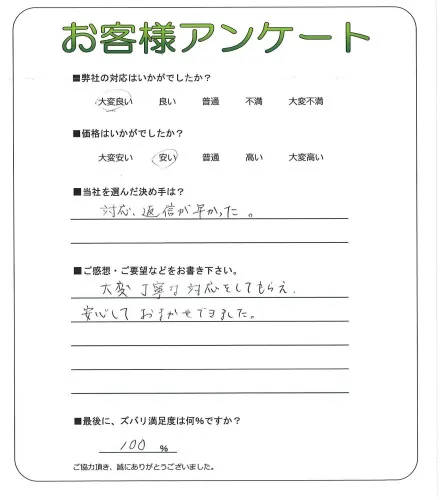 お客様アンケート
■弊社の対応はいかがでしたか？
大変良い 良い 普通 不満 大変不満
■価格はいかがでしたか？
大変安い 安い 普通 高い 大変高い
■当社を選んだ決め手は？
対応、返信が早かった。
■ご感想・ご要望などをお書き下さい。
大変丁寧な対応をしてもらえ、
安心しておまかせできました。
■最後に、ズバリ満足度は何％ですか？
100 ％
ご協力頂き、誠にありがとうございました。